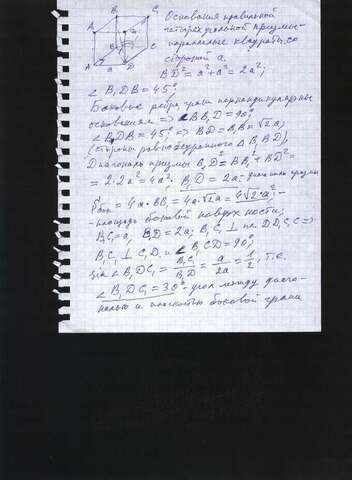 B₁
C₁
A₁
Основания правильной
четырехугольной призмы-
квадраты со
стороной a.
BD² = a² + a² = 2a²;
B
C
A
a
D
∠ B₁DB = 45°
Боковые ребра перпендикулярны
основаниям => ∠BB₁D = 90°
∠B₁DB = 45° => BD = B₁B = √2 a;
(стороны равнобедренного Δ B₁BD),
Диагональ призмы B₁D² = BB₁² + BD² =
= 2·2a² = 4a²; B₁D = 2a - диагональ призмы
Sбок = 4a·BB₁ = 4a·√2a = 4√2·a²; -
- площадь боковой поверхности;
B₁C₁ = a, B₁D = 2a; B₁C₁ ⊥ пл. DD₁C₁C =>
B₁C₁ ⊥ C₁D, и ∠B₁C₁D = 90°;
sin ∠B₁DC₁ = B₁C₁/B₁D = a/2a = 1/2, т.е.
∠ B₁DC₁ = 30° - угол между диаго-
налью и плоскостью боковой грани